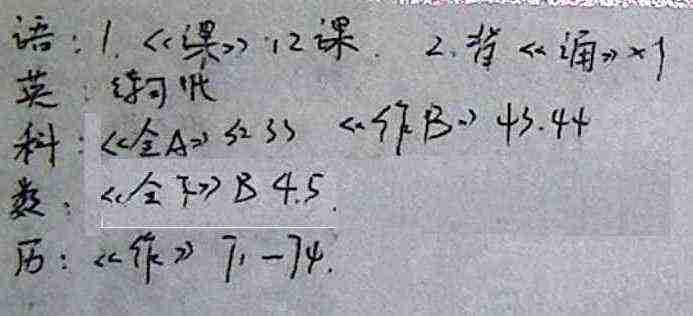 语：1.《课》12课. 2.背《涌》×1
英：练习册
科：《全A》32 33 《作B》43.44
数：《全下》B 4.5.
历：《作》71—74.